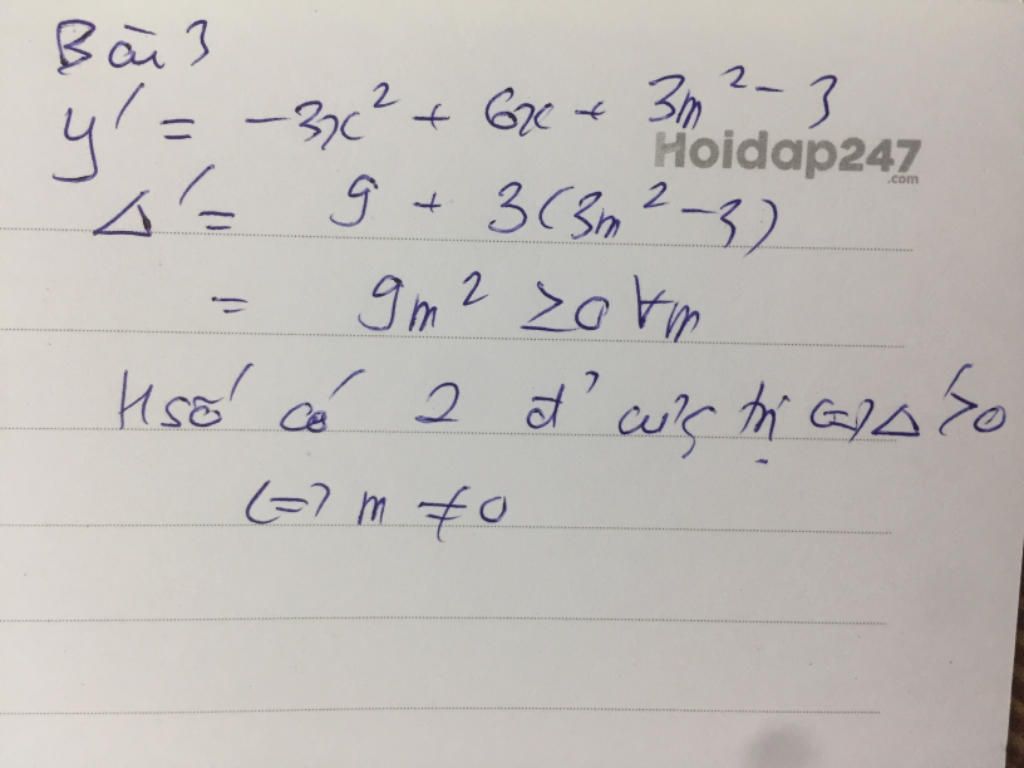 Bài 3
y' = -3x² + 6x + 3m² - 3
Hoidap247
.com
Δ' = 9 + 3(3m² - 3)
= 9m² ≥0 ∀m
H số có 2 đ' cực trị <=> Δ' >0
<=> m ≠ 0